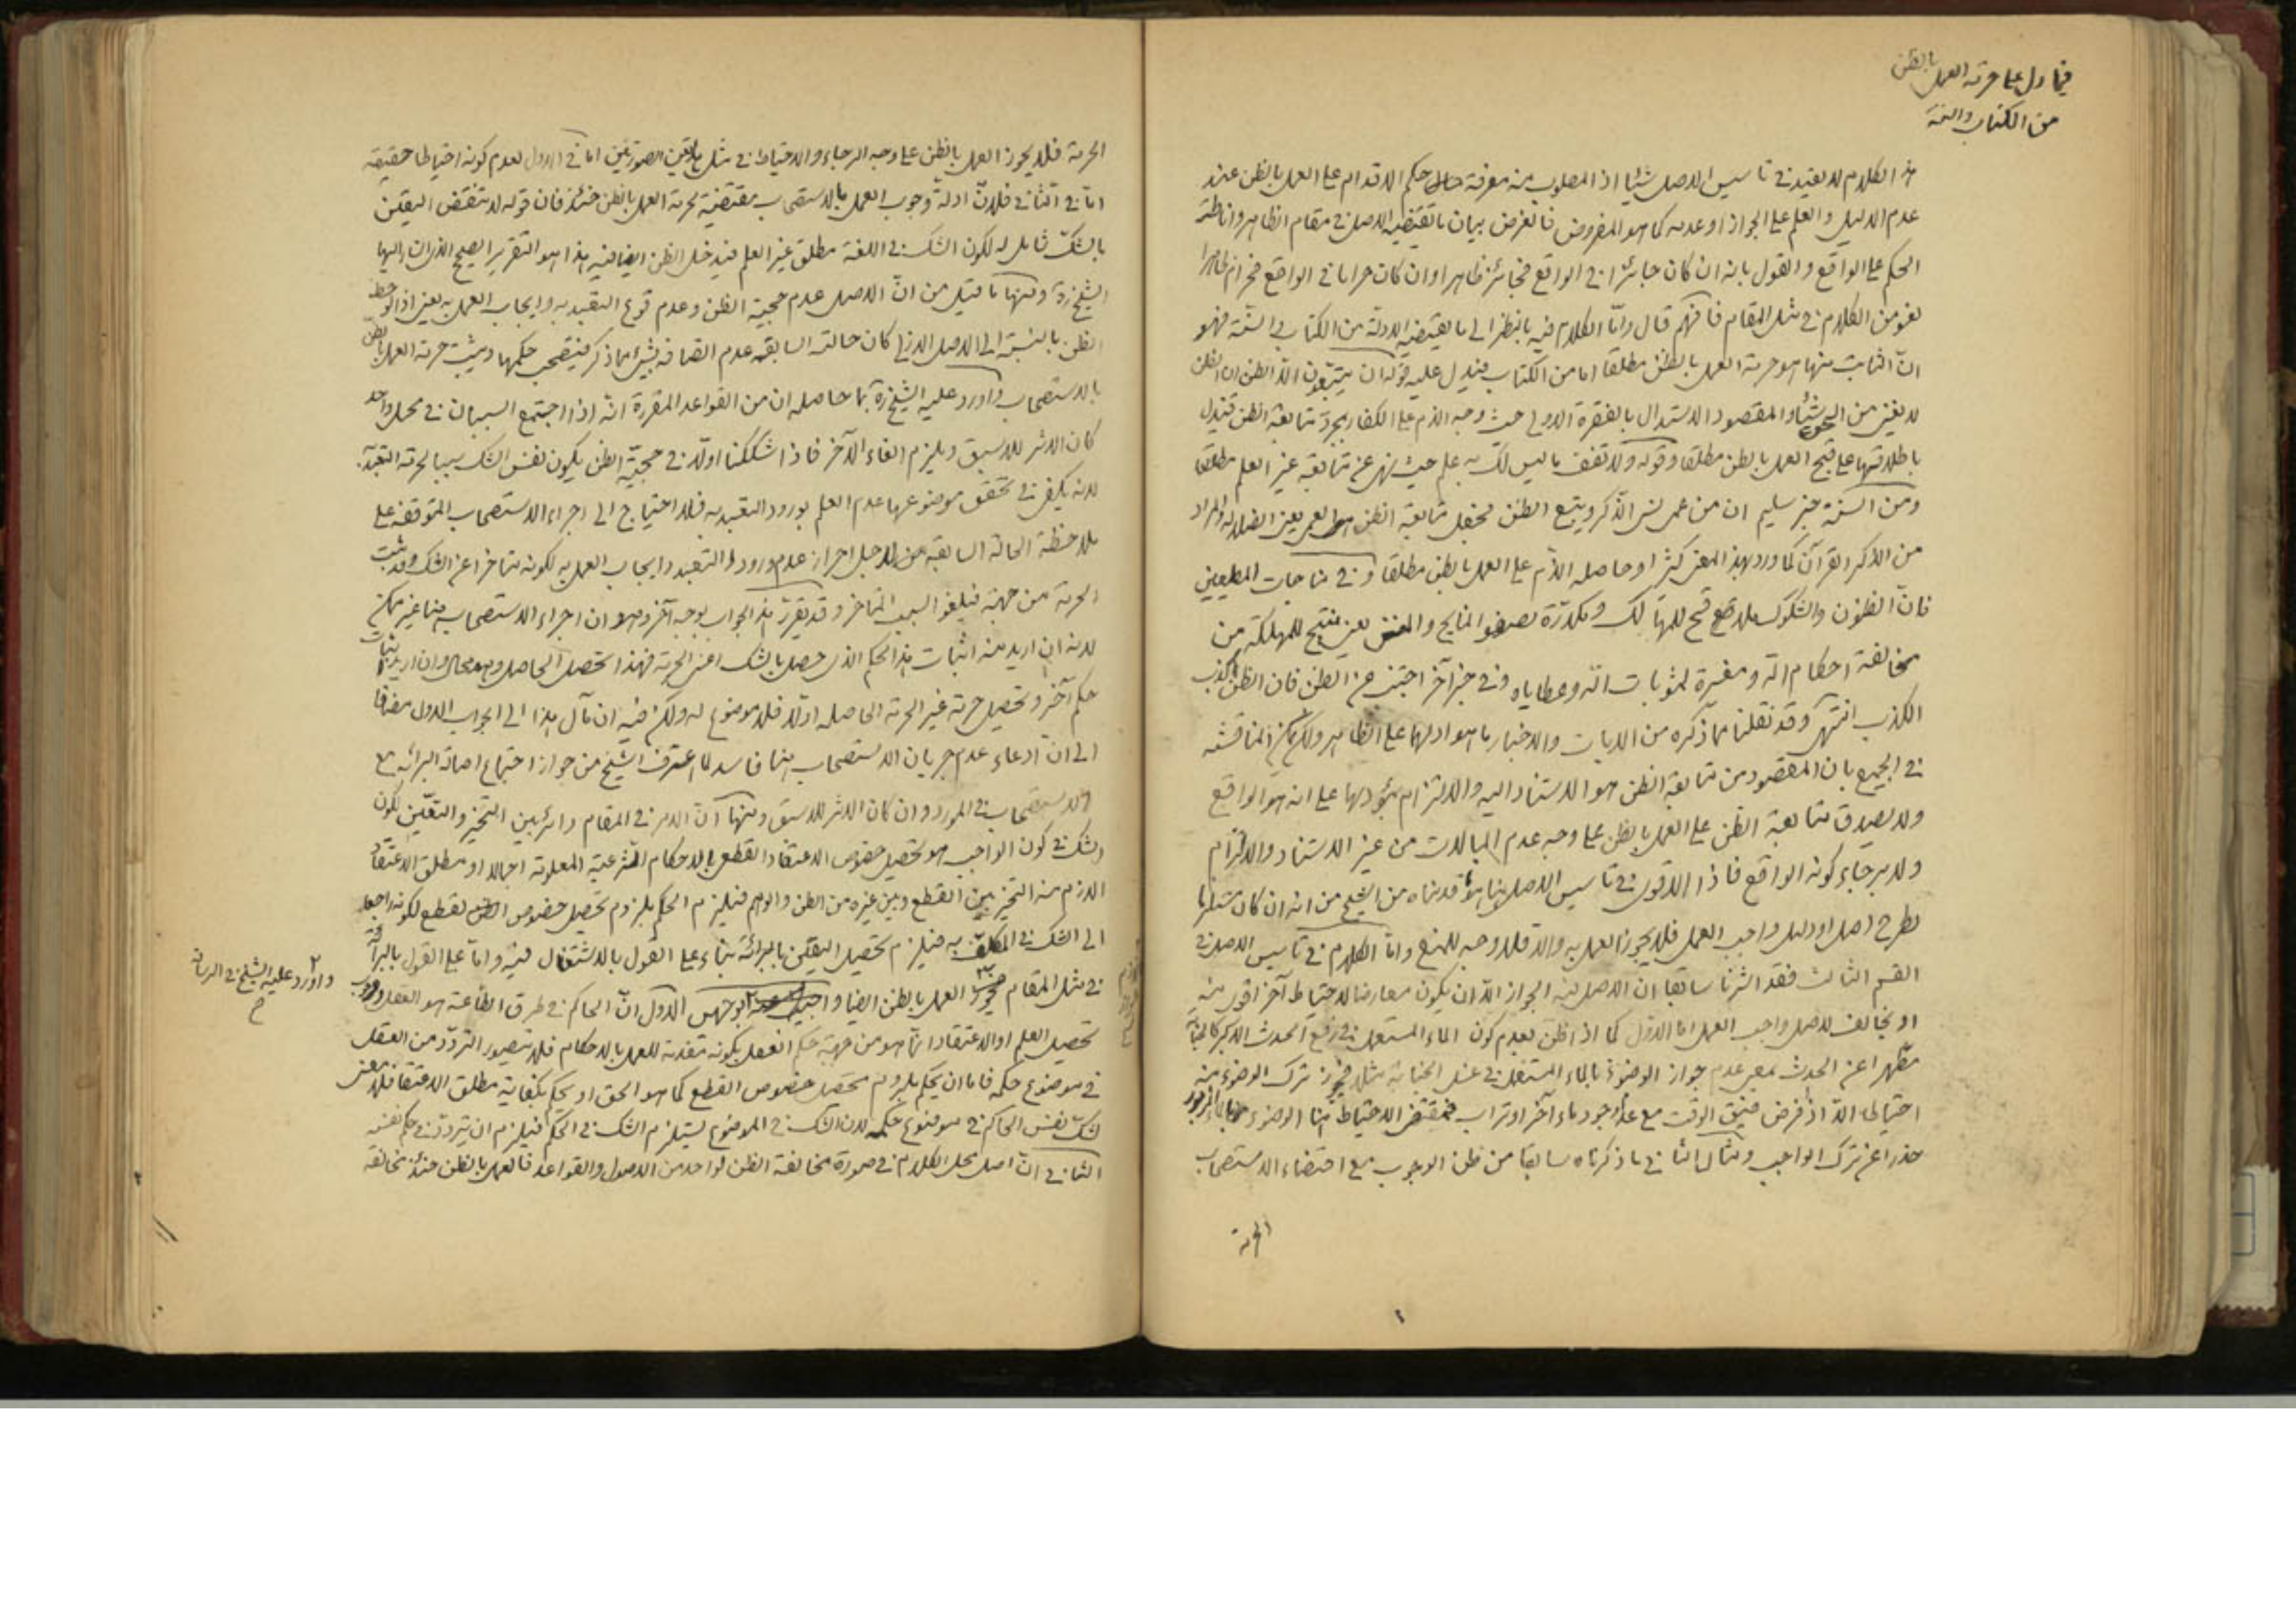 فيما دل على حرمة العمل بالظن
من الكتاب والسنة
هذا الكلام لا يفيد في تاسيس الاصل شيئا اذ المطلوب منه معرفة حكم الاقدام على العمل بالظن عند
عدم الدليل والعلم على الجواز او عدمه كما هو المفروض فالغرض بيان ما تقتضيه الاصل في مقام الظاهر واناطة
الحكم على الواقع والقول بانه ان كان جائزا في الواقع فجائز ظاهرا وان كان حراما في الواقع فحرام ظاهرا
لغو من الكلام في مثل المقام فافهم قال واما الكلام فيه بالنظر الى ما يقتضيه الادلة من الكتاب والسنة فهو
ان الثابت منها هو حرمة العمل بالظن مطلقا اما من الكتاب فيدل عليه قوله ان يتبعون الا الظن ان الظن
لا يغني من الحق شيئا والمقصود الاستدلال بالفقرة الاولى حيث وجه الذم على الكفار بمجرد متابعة الظن فتدل
باطلاقها على قبح العمل بالظن مطلقا وقوله ولا تقف ما ليس لك به علم حيث نهى عن متابعة غير العلم مطلقا
ومن السنة خبر سليم ان من عمى نسى الذكر ويتبع الظن فجعل متابعة الظن العمى يعني الضلالة والمراد
من الذكر القرآن كما ورد بهذا المعنى كثيرا وحاصله الذم على العمل بالظن مطلقا وفي مناجات المطيعين
فان الظنون والشكوك لواقح للمهالك ومكدرة لصفو المنايح والمنن يعني منتج للمهلكة من
مخالفة احكام الله ومغيرة لمثوبات الله وعطاياه وفي خبر آخر اجتنب عن الظن فان الظن اكذب
الكذب انتهى وقد نقلنا مما ذكره من الايات والاخبار ما هو ادلها على الظاهر ولكن يمكن المناقشة
في الجميع بان المقصود من متابعة الظن هو الاستناد اليه والالتزام بمؤداها على انه هو الواقع
ولا يصدق متابعة الظن على العمل بالظن على وجه عدم المبالات من غير الاستناد والالتزام
ولا برجاء كونه الواقع فاذا الاقوى في تاسيس الاصل هنا ما قدمناه من الشيخ من انه ان كان مستلزما
لطرح اصل او دليل واجب العمل فلا يجوز العمل به والا فلا وجه للمنع واما الكلام في تاسيس الاصل في
القسم الثالث فقد اشرنا سابقا ان الاصل فيه الجواز الا ان يكون معارضا لاحتياط آخر اقوى منه
او مخالف لاصل واجب العمل اما الاول كما اذا ظن بعدم كون الماء المستعمل في رفع الحدث الاكبر كالجنابة
مطهرا عن الحدث بمعنى عدم جواز الوضوء بالماء المستعمل في غسل الجنابة مثلا فيجوز ترك الوضوء منه
احتياطا الا اذا فرض ضيق الوقت مع عدم وجود ماء آخر او تراب فمقتضى الاحتياط هنا الوضوء بالماء المزبور
حذرا عن ترك الواجب ومثال الثاني ما ذكرناه سابقا من ظن الوجوب مع اقتضاء الاستصحاب
الحرمة
الحرمة فلا يجوز العمل بالظن على وجه الرجاء والاحتياط في مثل هاتين الصورتين اما في الاول لعدم كونه احتياطا حقيقة
اما في الثاني فلان ادلة وجوب العمل بالاستصحاب مقتضية لحرمة العمل بالظن حينئذ فان قوله لا تنقض اليقين
بالشك شامل له لكون الشك في اللغة مطلق غير العلم فيدخل الظن ايضا فيه هذا هو التقرير الصحيح الذي اشار اليها
الشيخ ره ومنها ما قيل من ان الاصل عدم حجية الظن وعدم وقوع التعبد به وايجاب العمل به يعني اذا لوحظ
الظن بالنسبة الى الاصل الذي كان حالته السابقة عدم اتصافه بشيء مما ذكر فيستصحب حكمها ويثبت حرمة العمل بالظن
بالاستصحاب واورد عليه الشيخ ره بما حاصله ان من القواعد المقررة انه اذا اجتمع السببان في محل واحد
كان الاثر للاسبق ويلزم الغاء الآخر فاذا شككنا اولا في حجية الظن يكون نفس الشك سببا لحرمة التعبد
لانه يكفي في تحقق موضوعها عدم العلم بورود التعبد به فلا احتياج الى اجراء الاستصحاب المتوقفة على
ملاحظة الحالة السابقة من لاجل احراز عدم ورود التعبد وايجاب العمل به لكونه متاخرا عن الشك وقد ثبت
الحرمة من جهته فيلغو السبب المتاخر وقد يقرر هذا الجواب بوجه آخر وهو ان اجراء الاستصحاب هنا غير ممكن
لانه ان اريد منه اثبات هذا الحكم الذي حصل بالشك اعني الحرمة فهذا تحصيل الحاصل وهو محال وان اريد اثبات
حكم آخر وتحصيل حرمة غير الحرمة الحاصلة اولا فلا موضوع له ولكن فيه ان مآل هذا الى الجواب الاول مضافا
الى ان ادعاء عدم جريان الاستصحاب هنا فاسد لما اعترف الشيخ من جواز اجتماع اصالة البرائة مع
الاستصحاب في المورد وان كان الاثر للاسبق ومنها ان الامر في المقام دائر بين التخيير والتعيين لكون
الشك في كون الواجب هو تحصيل خصوص الاعتقاد القطعي بالاحكام الشرعية المعلومة اجمالا او مطلق الاعتقاد
اللازم منه التخيير بين القطع وبين غيره من الظن والوهم فيلزم الحكم بلزوم تحصيل خصوص القطع لكونه راجعا
الى الشك في المكلف به فيلزم تحصيل اليقين بالبرائة بناء على القول بالاشتغال فيه واما على القول بالبرائة
في مثل المقام فيجوز العمل بالظن ايضا واجيب بوجهين الاول ان الحاكم في طرق الطاعة هو العقل ووجوب
تحصيل العلم او الاعتقاد انما هو من جهة حكم العقل بكونه مقدمة للعمل بالاحكام فلا يتصور التردد من العقل
في موضوع حكمه فاما ان يحكم بلزوم تحصيل خصوص القطع كما هو الحق او يحكم بكفاية مطلق الاعتقاد فلا معنى
لشك نفس الحاكم في موضوع حكمه لان الشك في الموضوع يستلزم الشك في الحكم فيلزم ان يتردد في حكم نفسه
الثاني ان اصل محل الكلام في صورة مخالفة الظن لواحد من الاصول والقواعد فالعمل بالظن حينئذ مخالفة
واورد عليه الشيخ في الرسالة